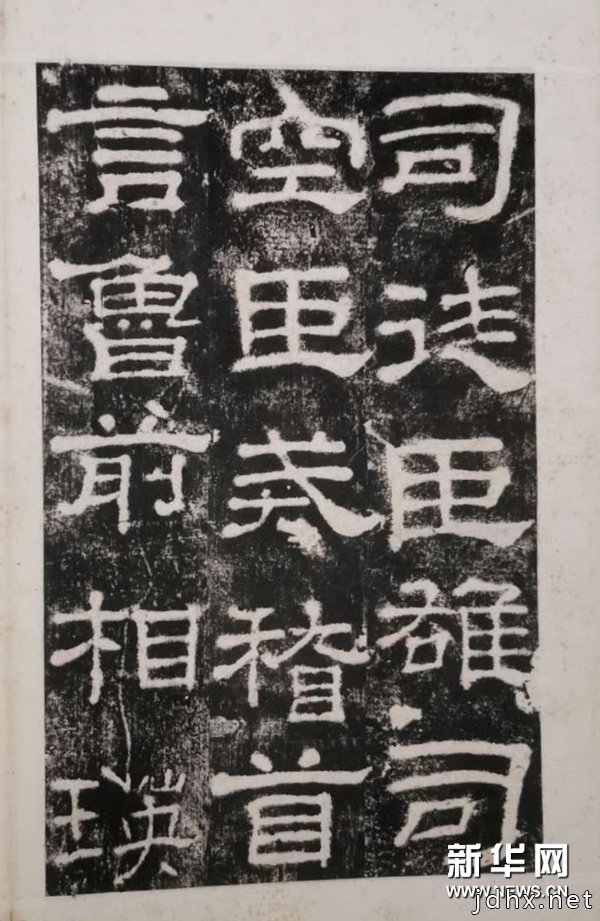 司徒臣雄司
空臣戒稽首
言魯前相瑛
新华网
WWW.NEWS.CN
jdhx.net